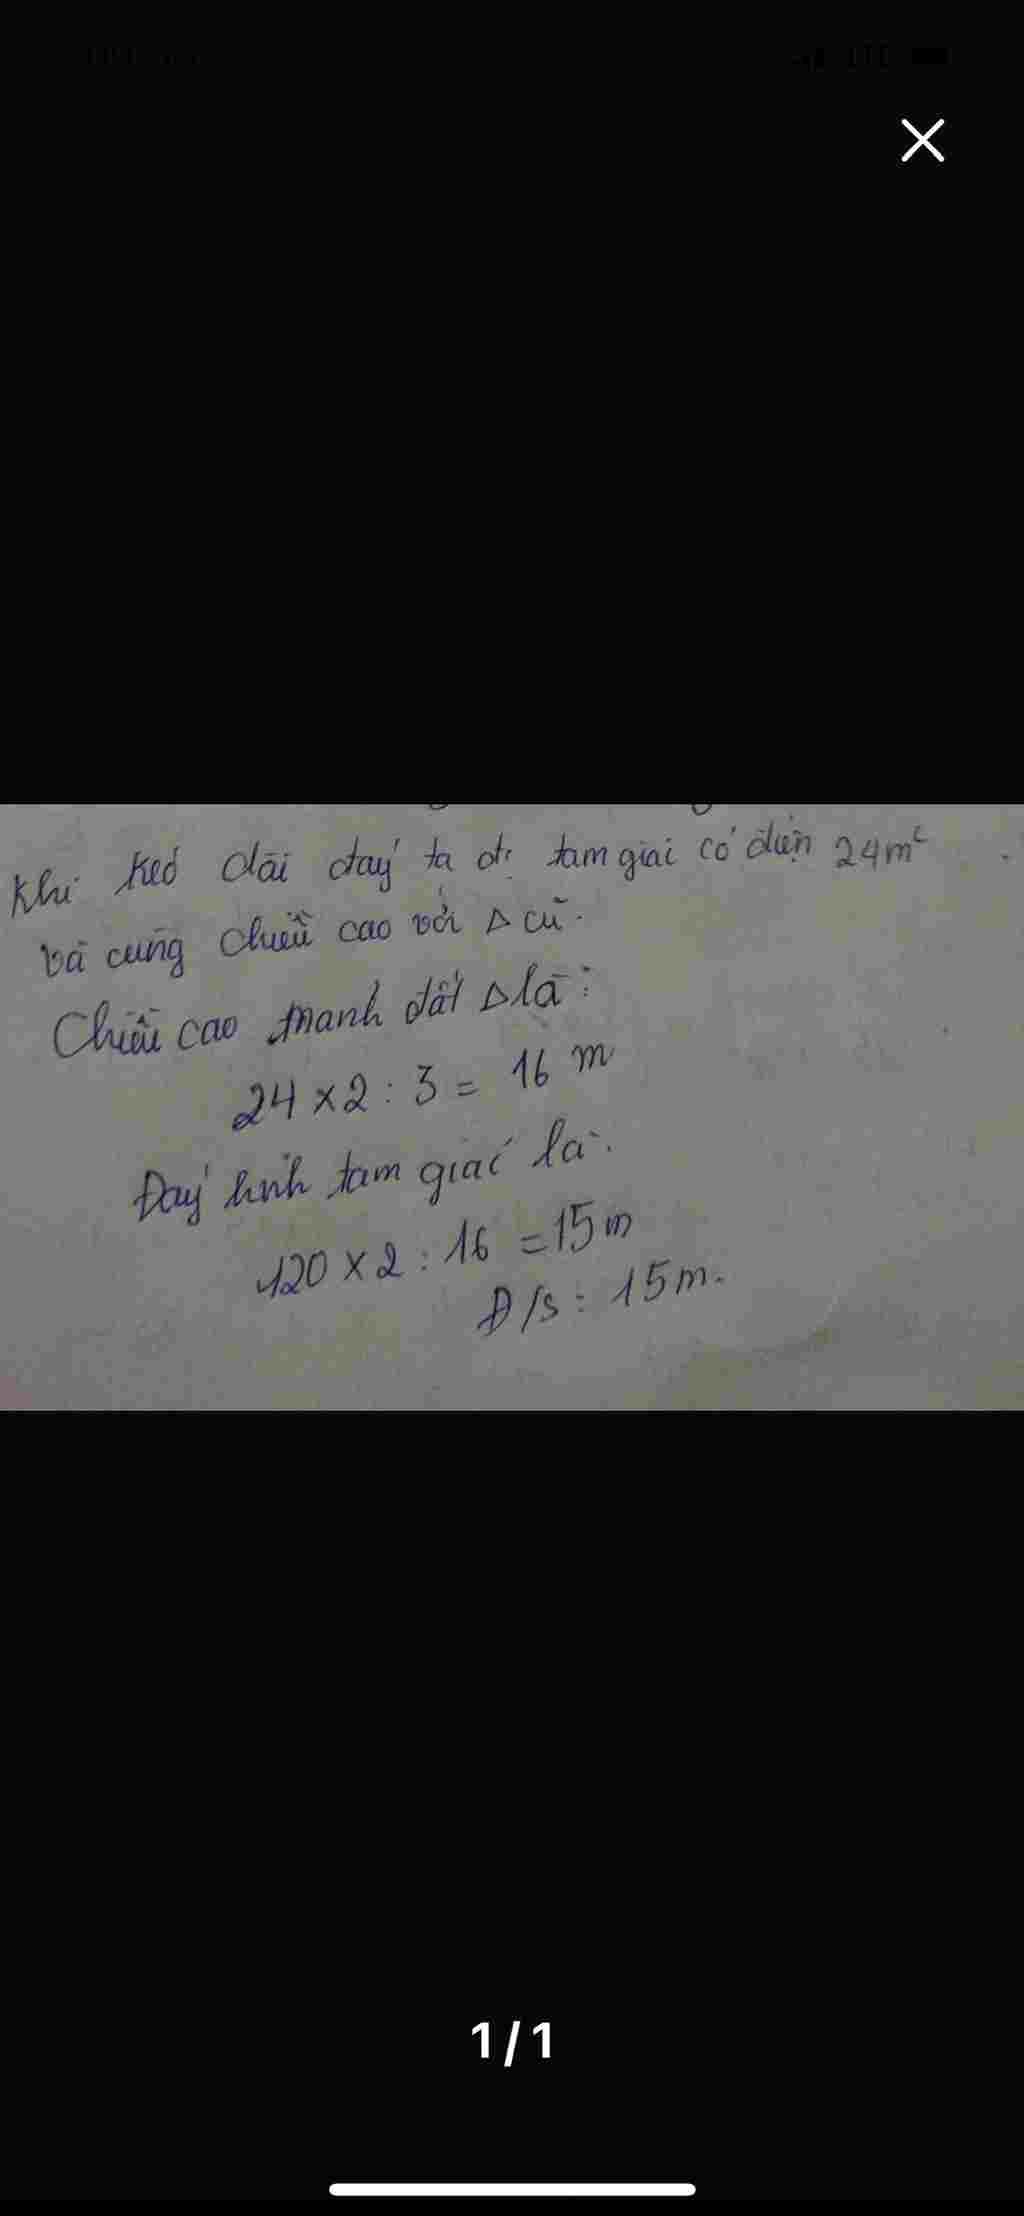 Khi kéo dài đáy ta đc tam giác có diện 24m²
và cùng chiều cao với Δ cũ.
Chiều cao mảnh đất Δ là:
24 × 2 : 3 = 16 m
Đáy hình tam giác là:
120 × 2 : 16 = 15 m
Đ/s: 15m.
1/1